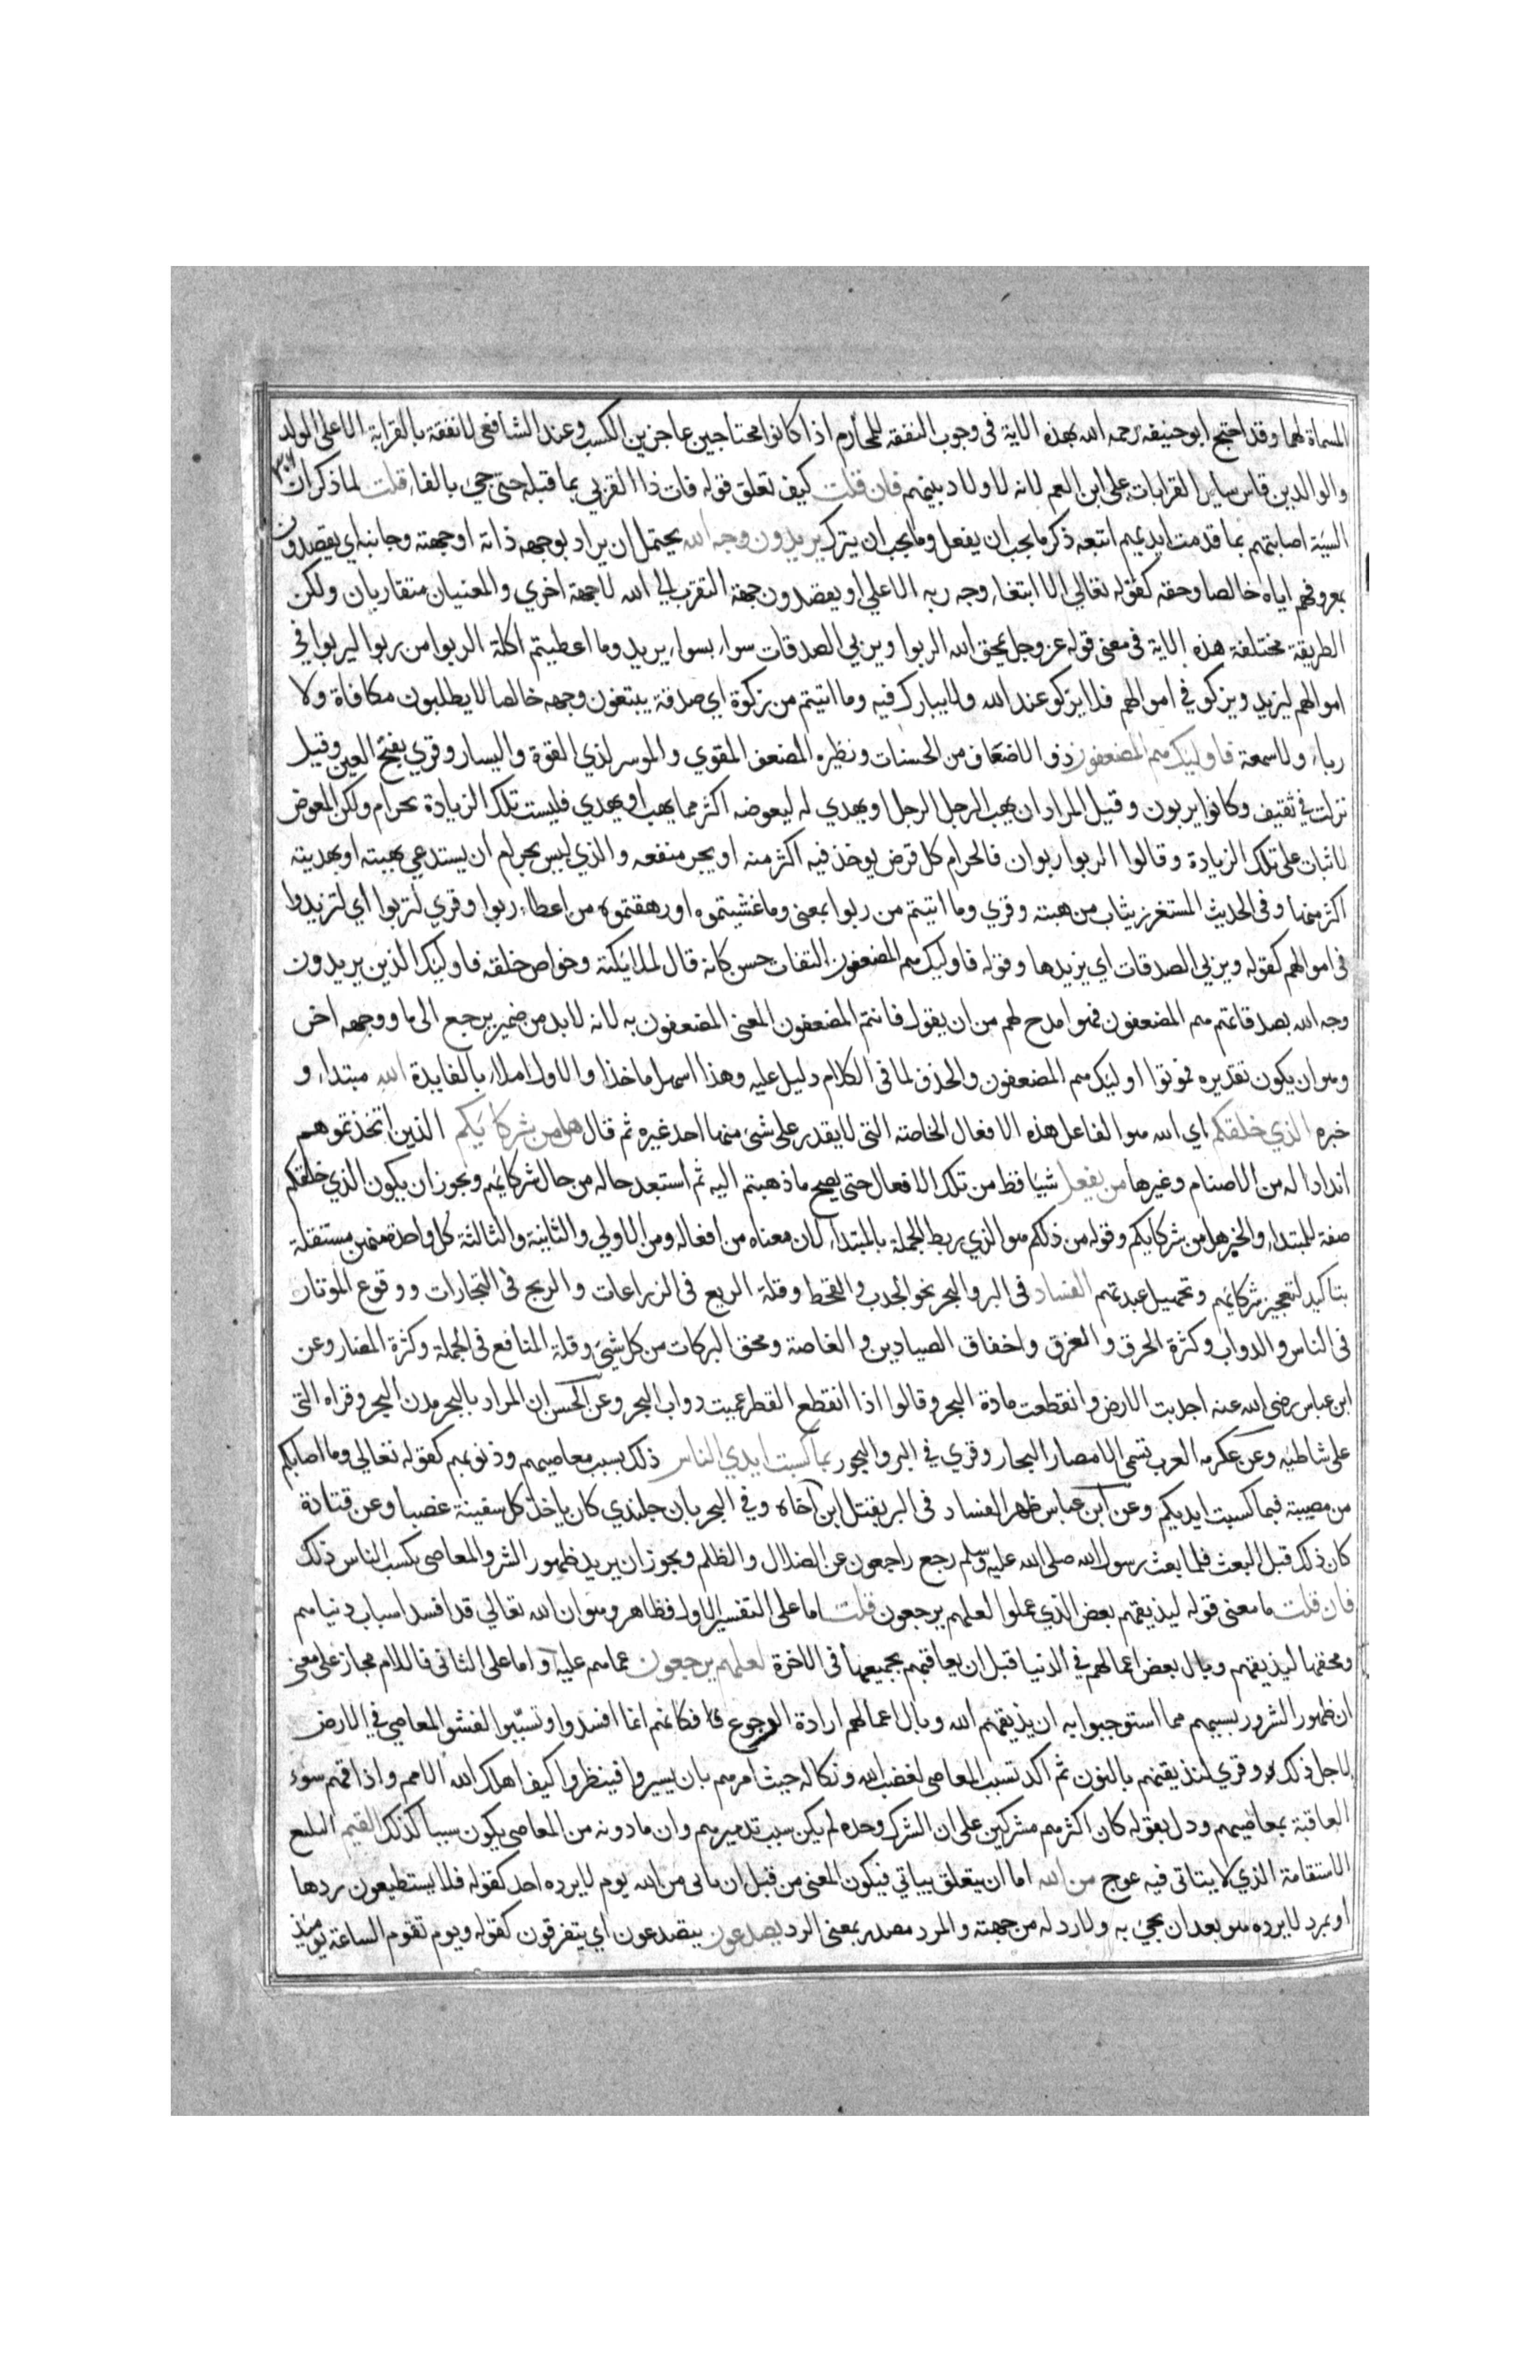 المسماة لهما وقد احتج ابو حنيفه رحمه الله بهذه الاية فى وجوب النفقة للمحارم اذا كانوا محتاجين عاجزين الكسب وعند الشافعى لا نفقة بالقرابة الا على الولد
والوالدين قاس ساير القرابات على ابن العم لانه لا ولاد بينهم فان قلت كيف تعلق قوله فات ذا القربي بما قبله حتى جيء بالفاء قلت لما ذكر ان
السيئة اصابتهم بما قدمت ايديهم اتبعه ذكر ما يجب ان يفعل وما يجب ان يترك يريدون وجه الله يحتمل ان يراد بوجهه ذاته او جهته وجانبه اي يقصدون
بمعروفهم اياه خالصا وحقه كقوله تعالي الا ابتغاء وجه ربه الاعلي او يقصدون جهة التقرب الى الله لا جهة اخري والمعنيان متقاربان ولكن
الطريقة مختلفة هذه الاية فى معنى قوله عز وجل يمحق الله الربوا ويربي الصدقات سواء بسواء يريد وما اعطيتم اكلة الربوا من ربوا ليربوا في
اموالهم ليزيد ويزكو في اموالهم فلا يزكو عند الله ولا يبارك فيه وما اتيتم من زكوة اي صدقة يبتغون وجهه خالصا لا يطلبون مكافاة ولا
رياء ولا سمعة فاوليك هم المضعفون ذوا الاضعاف من الحسنات ونظيره المضعف المقوي والموسر لذي القوة واليسار وقري بفتح العين وقيل
نزلت في ثقيف وكانوا يربون وقيل المراد ان يهب الرجل الرجل او يهدي له ليعوضه اكثر مما يهب او يهدي فليست تلك الزيادة بحرام ولكن المعوض
لا ثبات على تلك الزيادة وقالوا الربوا ربوان فالحرام كل قرض يوخذ فيه اكثر منه او يجر منفعه والذي ليس بحرام ان يستدعي بهبته او بهديته
اكثر منها وفى الحديث المستغزر يثاب من هبته وقري وما اتيتم من ربوا بمعنى وما غشيتموه او رهقتموه من اعطاء ربوا وقري لتربوا اي لتزيدوا
فى اموالهم كقوله ويربي الصدقات اي يزيدها وقوله فاوليك هم المضعفون التفات حسن كانه قال لملائكته وخواص خلقه فاوليك الذين يريدون
وجه الله بصدقاتهم هم المضعفون فهوا مدح لهم من ان يقول فانتم المضعفون المعنى المضعفون به لانه لابد من ضمير يرجع الى ما ووجهه اخر
وهو ان يكون تقديره فموتوا اوليك هم المضعفون والحذف لما فى الكلام دليل عليه وهذا اسهل ماخذا والاول املاء بالفايدة الله مبتداء و
خبره الذي خلقكم اي الله هو الفاعل هذه الافعال الخاصته التى لا يقدر على شئ منها احد غيره ثم قال هل من شركائكم الذين اتخذتموهم
اندادا له من الاصنام وغيرها من يفعل شيا قط من تلك الافعال حتى يصح ما ذهبتم اليه ثم استبعد حاله من حال شركائهم ويجوز ان يكون الذي خلقكم
صفة للمبتداء والخبر هل من شركايكم وقوله من ذلكم هو الذي ربط الجملة بالمبتداء لان معناه من افعاله ومن الاولي والثانية والثالثة كل واحدة منهن مستقلة
بتاكيد لتعجيز شركائهم وتجهيل عبدتهم الفساد فى البر والبحر نحو الجدب والقحط وقلة الريع فى الزراعات والربح فى التجارات ووقوع الموتان
فى الناس والدواب وكثرة الحرق والغرق واخفاق الصيادين والغاصة ومحق البركات من كل شئ وقلة المنافع فى الجملة وكثرة المضار وعن
ابن عباس رضى الله عنه اجدبت الارض وانقطعت مادة البحر وقالوا اذا انقطع القطر عميت دواب البحر وعن الحسن ان المراد بالبحر مدن البحر وقراه التى
على شاطئه وعن عكرمه العرب تسمى الامصار البحار وقري في البر والبحور بما كسبت ايدي الناس ذلك بسبب معاصيهم وذنوبهم كقوله تعالي وما اصابكم
من مصيبة فبما كسبت ايديكم وعن ابن عباس ظهر الفساد فى البر بقتل ابن آخاه وفي البحر بان جلندي كان ياخذ كل سفينة غصبا وعن قتادة
كان ذلك قبل البعث فلما بعث رسول الله صلى الله عليه وسلم رجع راجعون عن الضلال والظلم ويجوز ان يريد ظهور الشر والمعاصى بكسب الناس ذلك
فان قلت ما معنى قوله ليذيقهم بعض الذي عملوا لعلهم يرجعون قلت اما على التفسير الاول فظاهر وهو ان الله تعالي قد افسد اسباب دنياهم
ومحقها ليذيقهم وبال بعض اعمالهم في الدنيا قبل ان يعاقبهم بجميعها فى الاخرة لعلهم يرجعون عما هم عليه واما على الثانى فاللام مجاز على معنى
ان ظهور الشرور بسببهم مما استوجبوا به ان يذيقهم الله وبال اعمالهم ارادة الرجوع فكانهم انما افسدوا وتسببوا لفشو المعاصي في الارض
لاجل ذلك وقري لنذيقهم بالنون ثم اكد تسبب المعاصى لغضب الله ونكاله حيث امرهم بان يسيروا فينظروا كيف اهلك الله الامم واذاقهم سوء
العاقبة بمعاصيهم ودل بقوله كان اكثرهم مشركين على ان الشرك وحده لم يكن سبب تدميرهم وان ما دونه من المعاصى يكون سببا كذلك القيم البليع
الاستقامة الذي لا يتاتى فيه عوج من الله اما ان يتعلق بياتي فيكون المعنى من قبل ان ياتى من الله يوم لا يرده احد كقوله فلا يستطيعون ردها
او بمرد لا يرده هو بعد ان يجئ به ولا رد له من جهته والمرد مصدر بمعنى الرد يصدعون يتصدعون اي يتفرقون كقوله ويوم تقوم الساعة يومئذ